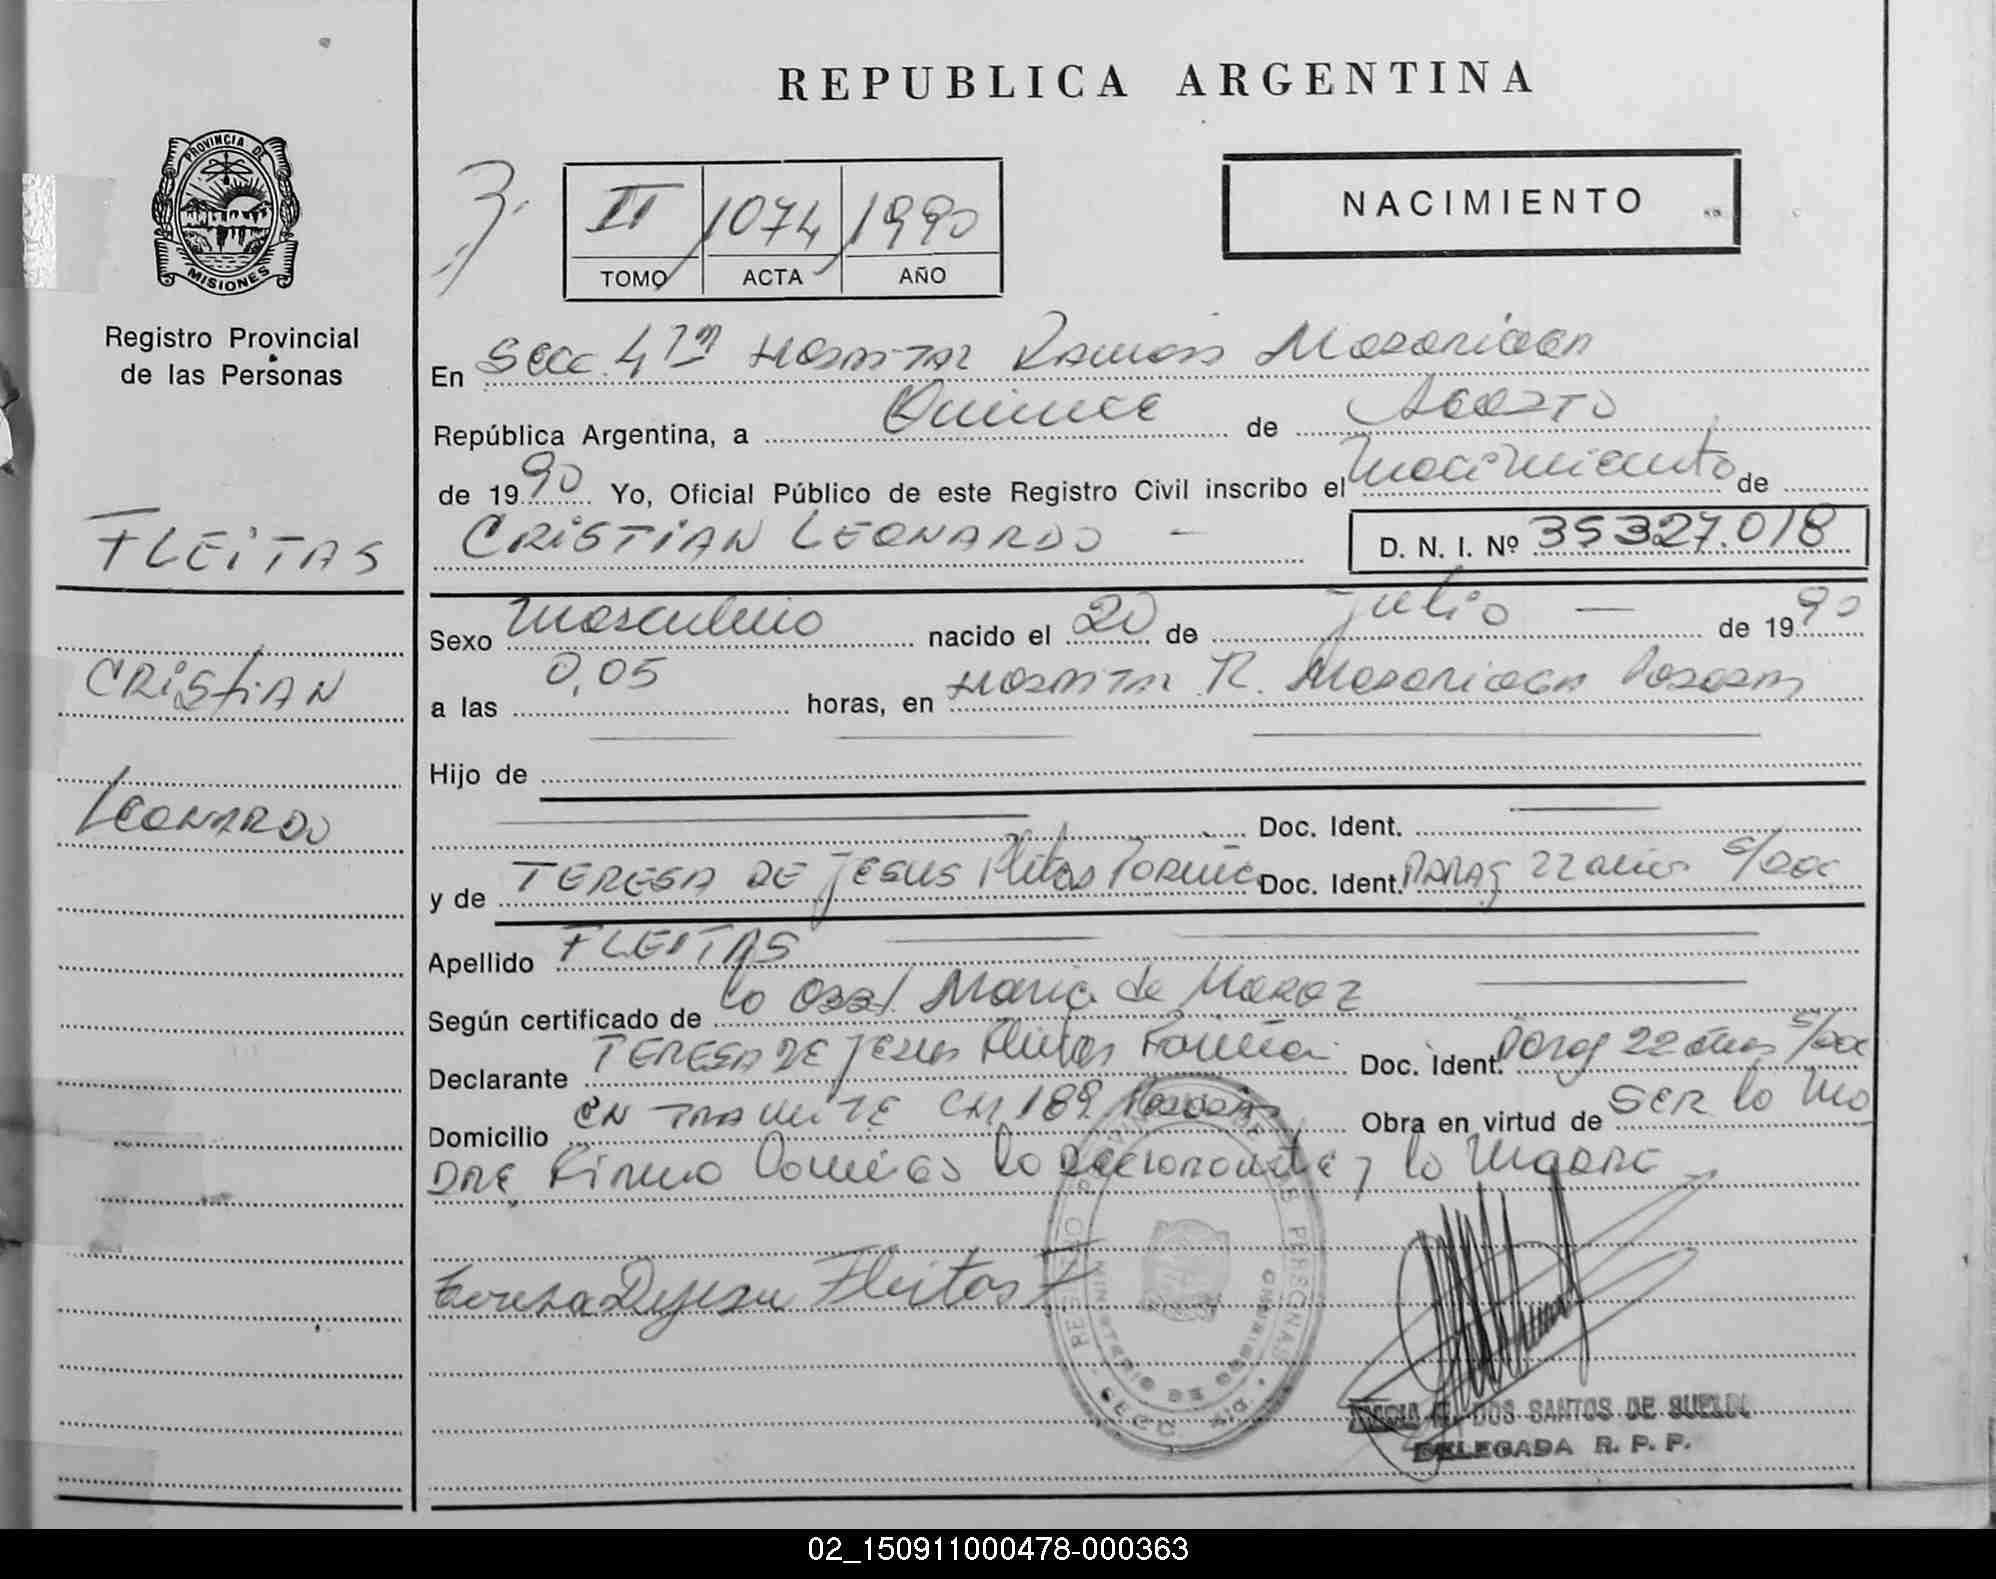 REPUBLICA ARGENTINA
PROVINCIA DE
MISIONES
Registro Provincial
de las Personas
II 1074 1990
TOMO ACTA AÑO
NACIMIENTO
En Secc. 4ta Hospital Ramon Madariaga
República Argentina, a Quince de Agosto
de 1990 Yo, Oficial Público de este Registro Civil inscribo el nacimiento de
CRISTIAN LEONARDO —
D. N. I. Nº 35327.018
FLEITAS
CRISTIAN
LEONARDO
Sexo masculino nacido el 20 de julio — de 1990
a las 0,05 horas, en Hospital R. Madariaga Posadas
Hijo de
Doc. Ident.
y de TERESA DE JESUS Fleitas Fariña Doc. Ident. PARAG 22 años s/doc
Apellido FLEITAS
Según certificado de la Obst. Maria de
Declarante TERESA DE Jesus Fleitas Fariña Doc. Ident. Parag 22 años s/doc
Domicilio EN TRAMITE CH 189 Posadas Obra en virtud de SER la Ma
DRE, Firma la declarante y la Madre
Teresa Dejesu Fleitas F
DOS SANTOS DE
DELEGADA R. P. P.
02_150911000478-000363